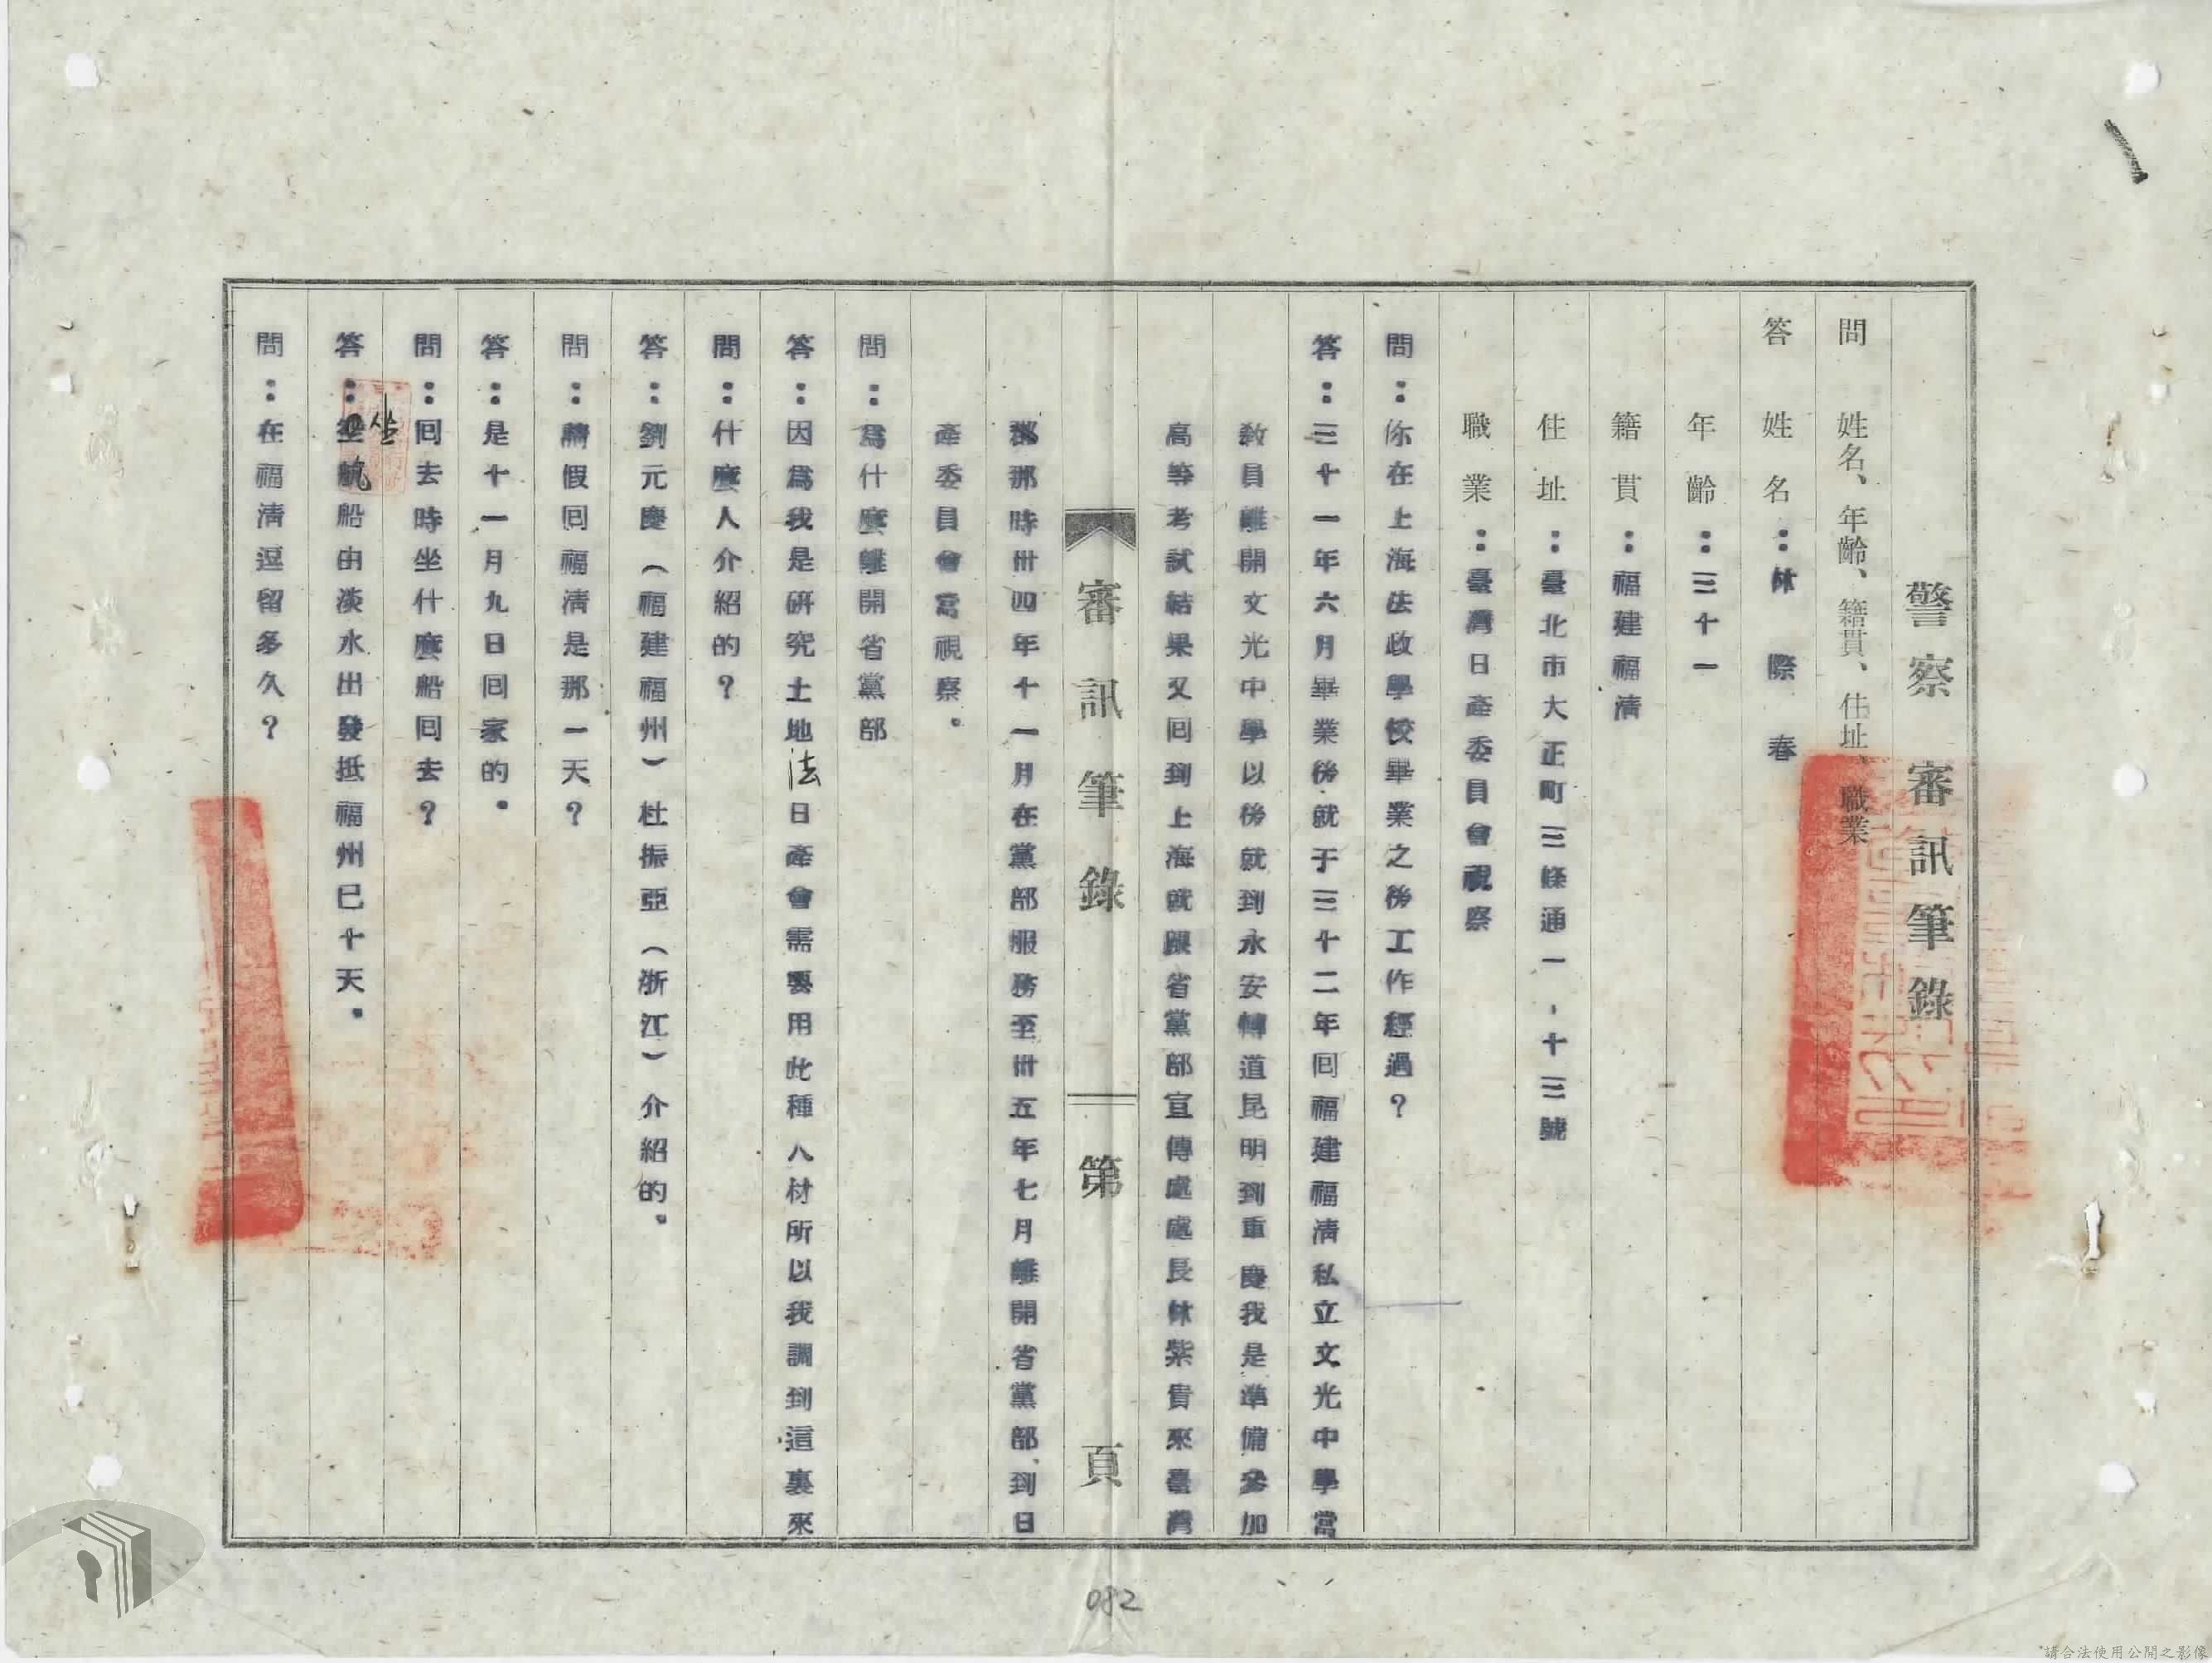 警察審訊筆錄
問 姓名、年齡、籍貫、住址、職業
答 姓名：林際春
年齡：三十一
籍貫：福建福清
住址：臺北市大正町三條通一、十三號
職業：臺灣日產委員會視察
問：你在上海法政學校畢業之後工作經過？
答：三十一年六月畢業後就于三十二年回福建福清私立文光中學當
教員離開文光中學以後就到永安轉道昆明到重慶我是準備參加
高等考試結果又回到上海就跟省黨部宣傳處處長林紫貴來臺灣
審訊筆錄 第 頁
那時卅四年十一月在黨部服務至卅五年七月離開省黨部、到日
產委員會當視察。
問：爲什麼離開省黨部
答：因爲我是研究土地法日產會需要用此種人材所以我調到這裏來
問：什麼人介紹的？
答：劉元慶（福建福州）杜振亞（浙江）介紹的。
問：請假回福清是那一天？
答：是十一月九日回家的。
問：回去時坐什麼船回去？
答：坐帆船由淡水出發抵福州已十天。
問：在福清逗留多久？
082
請合法使用公開之影像